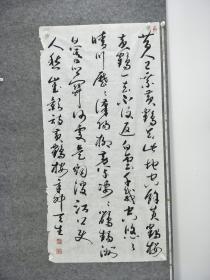 昔人已乘黄鶴去此地空餘黄鶴樓
黄鶴一去不復返白雲千載空悠々
晴川歷々漢陽樹芳草萋々鸚鵡洲
日暮鄉關何處是煙波江上使
人愁崔顥詩黄鶴樓辛卯天生